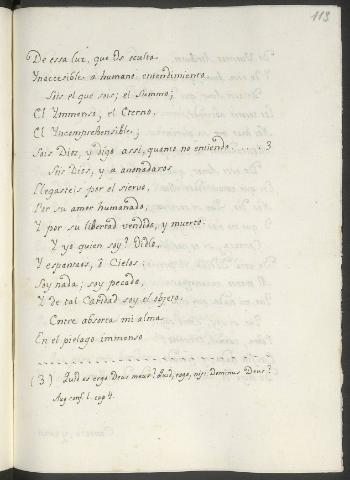 113
De essa luz, que Os oculta
Ynaccesible a humano entendimiento.
Sois el que sois; el Summo;
El Ymmenso, el Eterno,
El Yncomprehensible;
Sois Dios, y digo assi, quanto no entiendo. . . . . 3
Sois Dios, y a anonadaros
Llegasteis por el siervo,
Por su amor humanado,
Y por su libertad vendido, y muerto.
Y yo quien soy? Oidlo,
Y espantaos, ô Cielos:
Soy nada; soy pecado,
Y de tal Caridad soy el objeto.
Entre absorta mi alma
En el pielago immenso
(3) Quid es ergo Deus meus? Quid, rogo, nisi Dominus Deus?
Aug conf. l. cap 4.